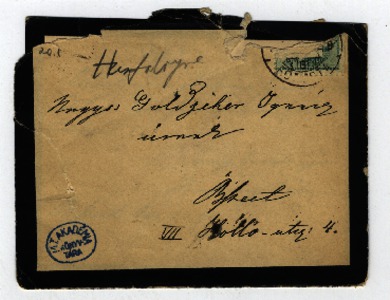 20.8
Nagys: Goldziher Ignácz
úrnak
Bpest
VII Holló-utcz: 4.
M. T. AKADÉMIA
KÖNYV
TÁRA